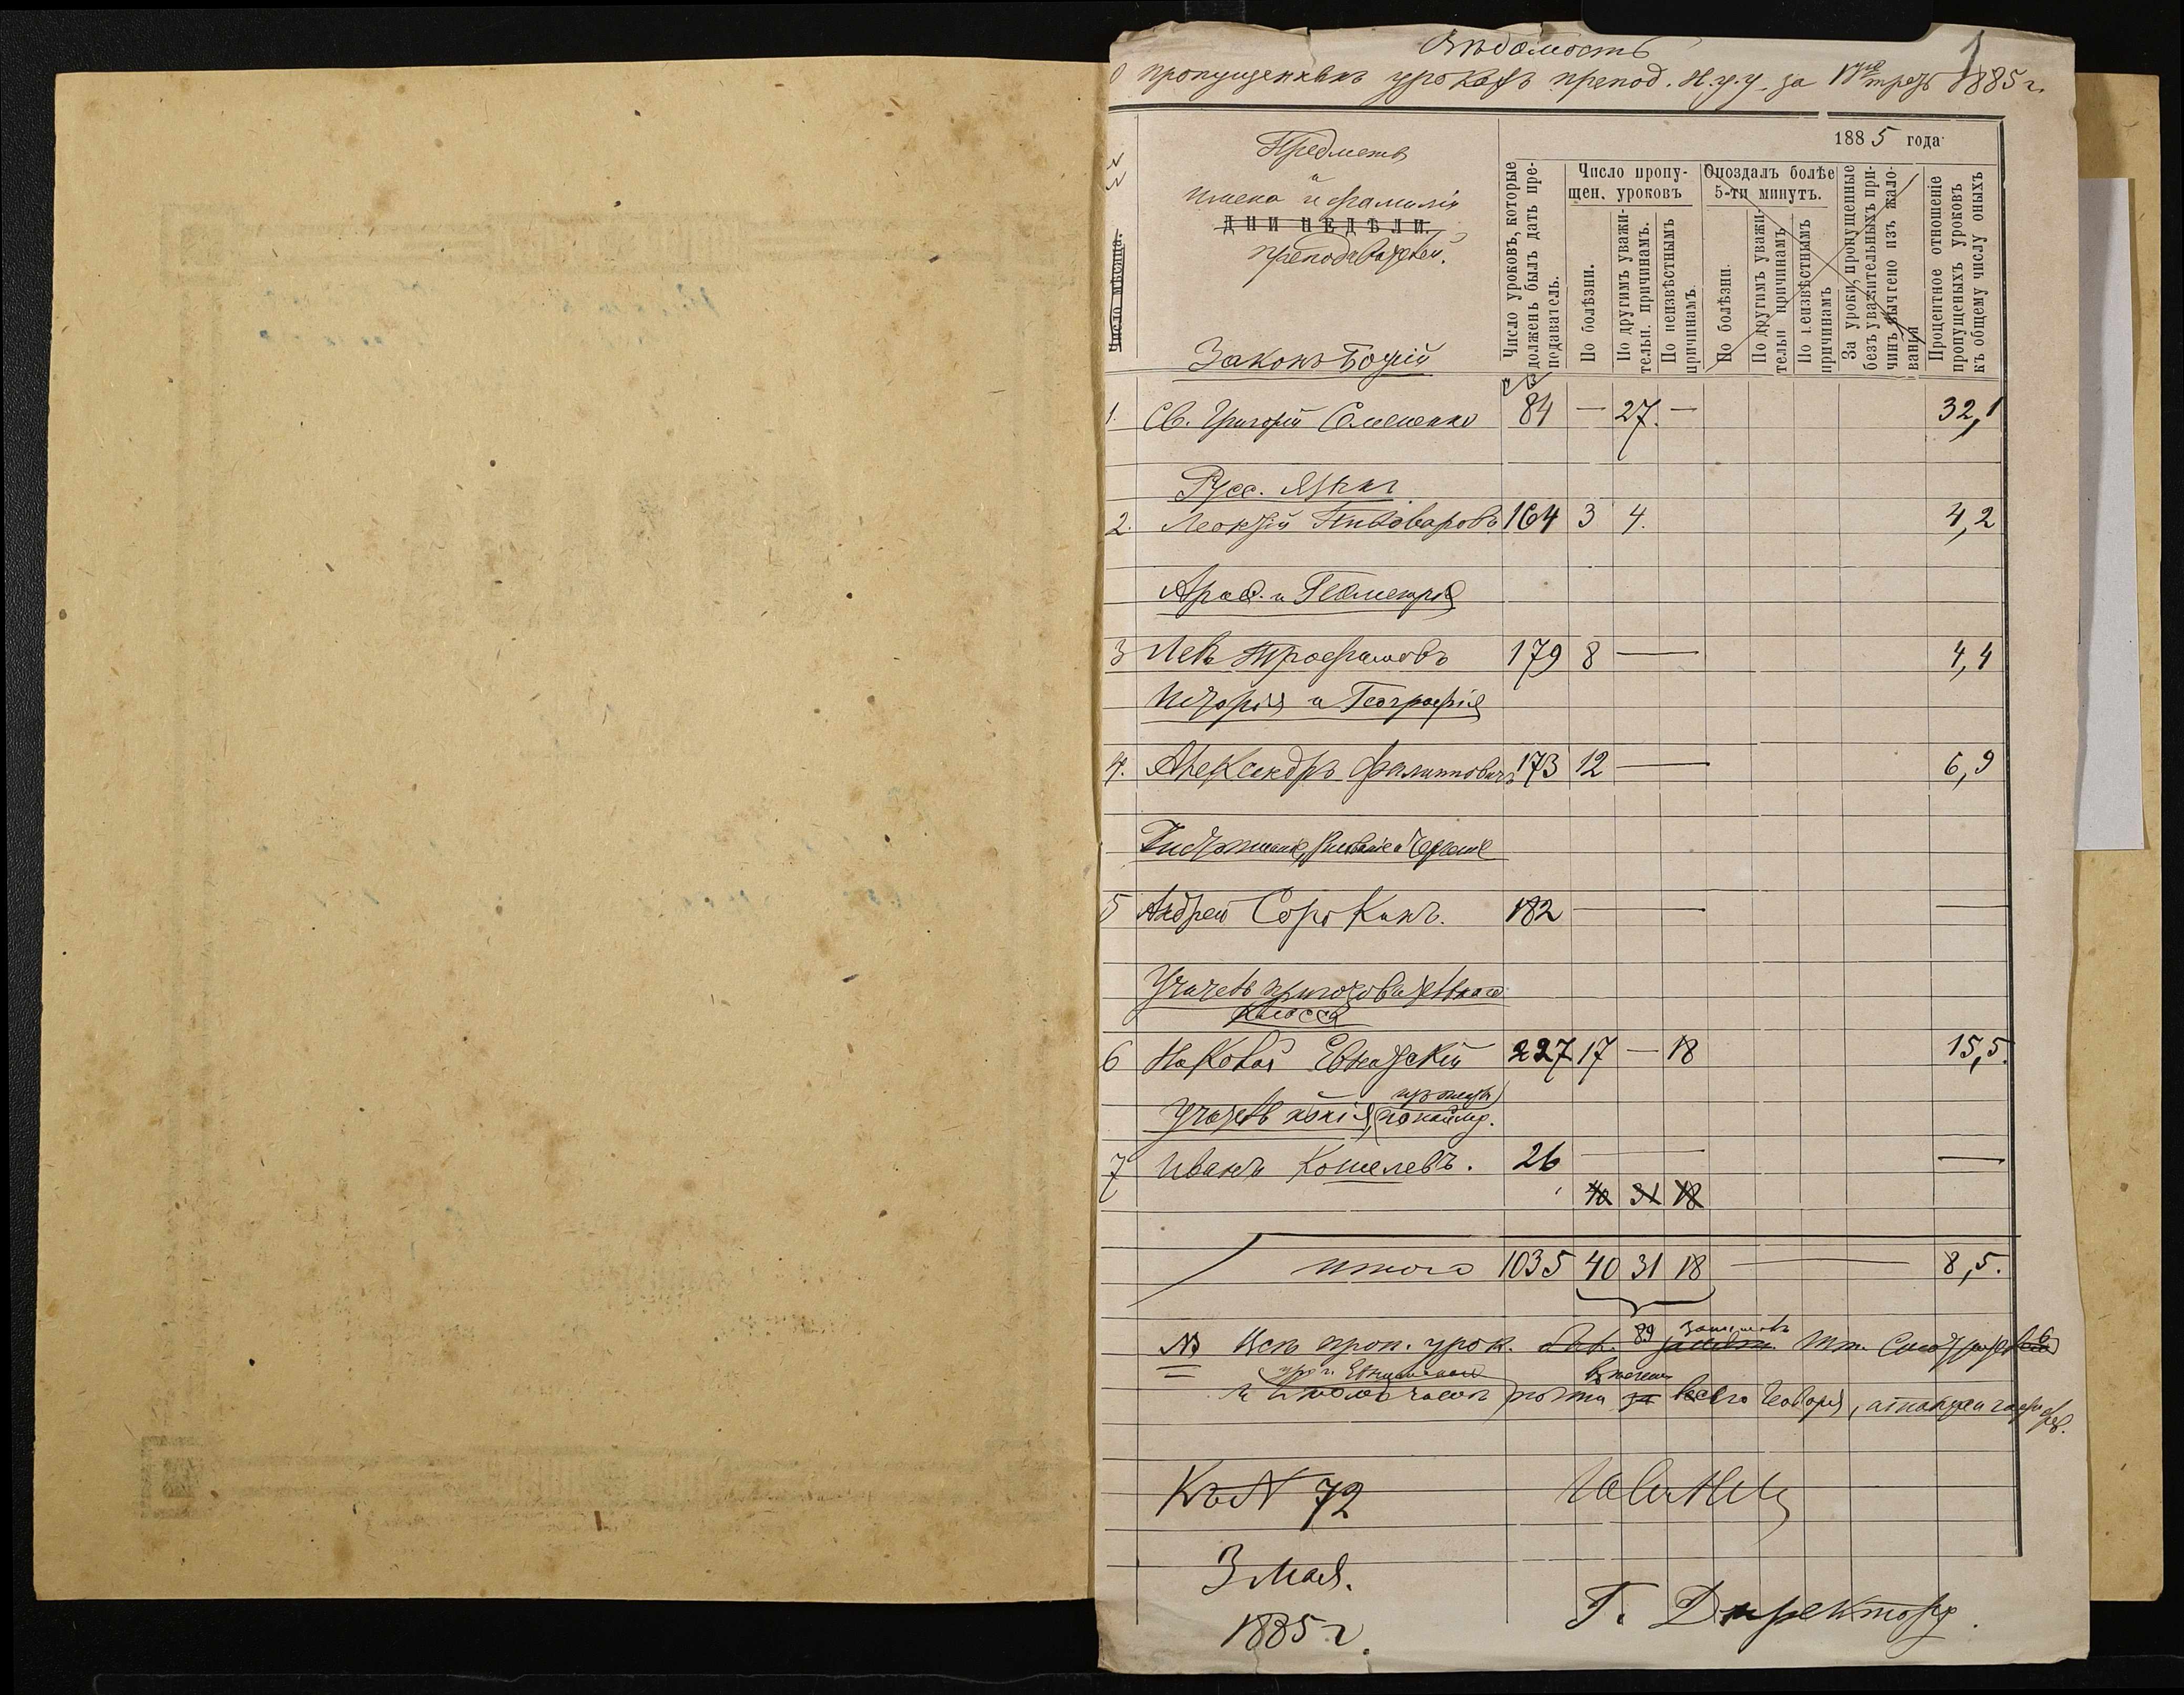 1
Вѣдомость
О пропущенныхъ урокахъ препод. Н.у.у. за 1ую треть 1885 г.
Число мѣсяца.
Предметъ
и
имена и фамилія
ДНИ НЕДѢЛИ.
преподавателей.
1885 года
Число уроковъ, которые долженъ былъ дать преподаватель.
Число пропущен. уроковъ
По болѣзни.
По другимъ уважительн. причинамъ.
По неизвѣстнымъ причинамъ.
Опоздалъ болѣе 5-ти минутъ.
По болѣзни.
По другимъ уважительн причинамъ
По неизвѣстнымъ причинамъ
За уроки, пропущенные безъ уважительныхъ причинъ вычтено изъ жалованья
Процентное отношеніе пропущеныхъ уроковъ къ общему числу оныхъ
Законъ Божій
1. Св. Григорій Семененко 84 — 27. — 32,1
Русс. языкъ
2. Леонтій Пивоваровъ 164 3 4. 4,2
Ариѳ. и Геометрія
3 Левъ Трофимовъ 179 8 — 4,4
Исторія и Географія
4. Александръ Филипповичъ 173 12 — 6,9
Чистописаніе, рисованіе и черченіе
5 Андрей Сорокинъ. 182 — —
Учитель приготовительнаго
класса
6 Николай 227 17 — 18 15,5.
Учитель пѣнія
7 Иванъ Кошелевъ. 26 — —
40 31 18
Итого 1035 40 31 18 — 8,5.
NB Всѣ проп. урок. 89
всего Января,
Къ N 72
3 Мая.
1885 г.
Г. Директору.